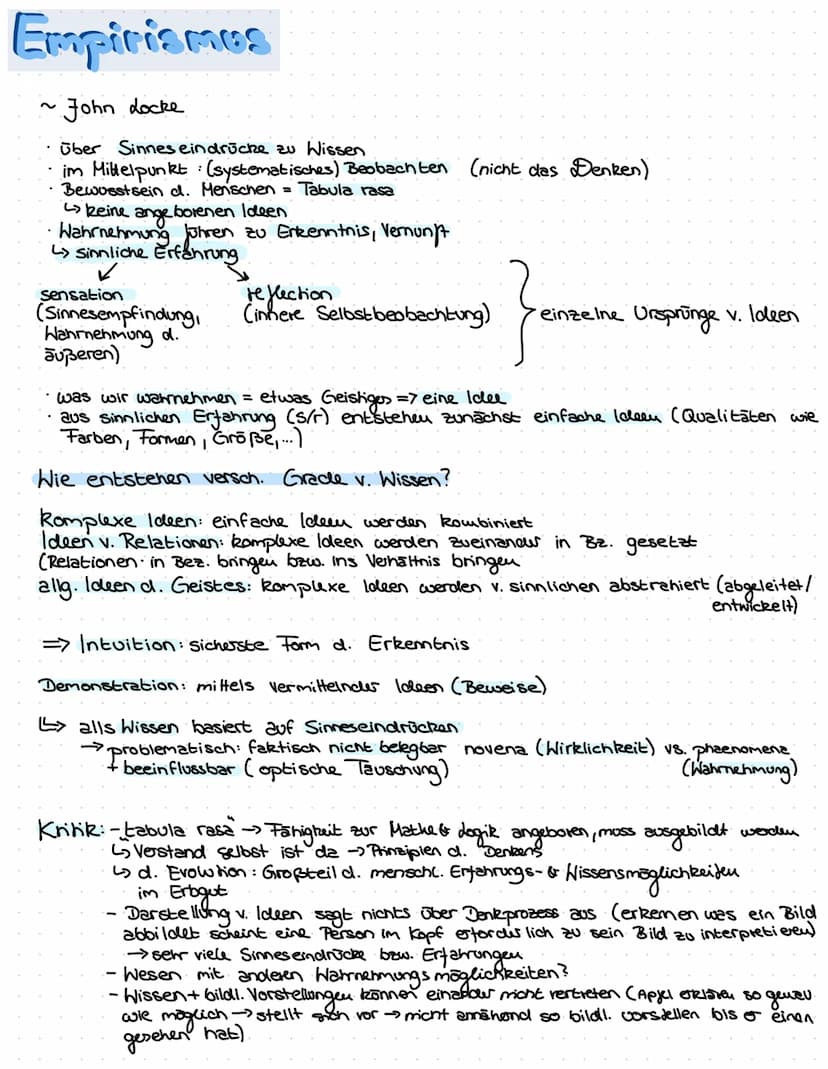 Empirismus
~ John Locke
· über Sinneseindrücke zu Wissen
· im Mittelpunkt : (systematisches) Beobachten (nicht das Denken)
· Bewusstsein d. Menschen = Tabula rasa
↳ keine angeborenen Ideen
· Wahrnehmung führen zu Erkenntnis, Vernunft
↳ sinnliche Erfahrung
sensation
(Sinnesempfindung,
Wahrnehmung d.
äußeren)
reflection
(innere Selbstbeobachtung)
einzelne Ursprünge v. Ideen
· was wir wahrnehmen = etwas Geistiges => eine Idee
· aus sinnlichen Erfahrung (s/r) entstehen zunächst einfache Ideen (Qualitäten wie
Farben, Formen, Größe,...)
Wie entstehen versch. Grade v. Wissen?
Komplexe Ideen: einfache Ideen werden kombiniert
Ideen v. Relationen: komplexe Ideen werden zueinander in Bz. gesetzt
(Relationen: in Bez. bringen bzw. ins Verhältnis bringen
allg. Ideen d. Geistes: komplexe Ideen werden v. sinnlichen abstrahiert (abgeleitet/
entwickelt)
=> Intuition: sicherste Form d. Erkenntnis
Demonstration: mittels vermittelnder Ideen (Beweise)
↳ alls Wissen basiert auf Sinneseindrücken
→ problematisch: faktisch nicht belegbar novena (Wirklichkeit) vs. phaenomena
+ beeinflussbar (optische Täuschung) (Wahrnehmung)
Kritik: - tabula rasa" → Fähigkeit zur Mathe & Logik angeboren, muss ausgebildet werden
↳ Verstand selbst ist da → Prinzipien d. Denkens
↳ d. Evolution : Großteil d. menschl. Erfahrungs- & Wissensmöglichkeiten
im Erbgut
- Darstellung v. Ideen sagt nichts über Denkprozess aus (erkennen was ein Bild
abbildet scheint eine Person im Kopf erforderlich zu sein Bild zu interpretieren)
→ sehr viele Sinneseindrücke bzw. Erfahrungen
- Wesen mit anderen Wahrnehmungsmöglichkeiten?
- Wissen + bildl. Vorstellungen können einander nicht vertreten (Apfel erklären so genau
wie möglich → stellt sich vor → nicht annähernd so bildl. vorstellen bis er einen
gesehen hat)